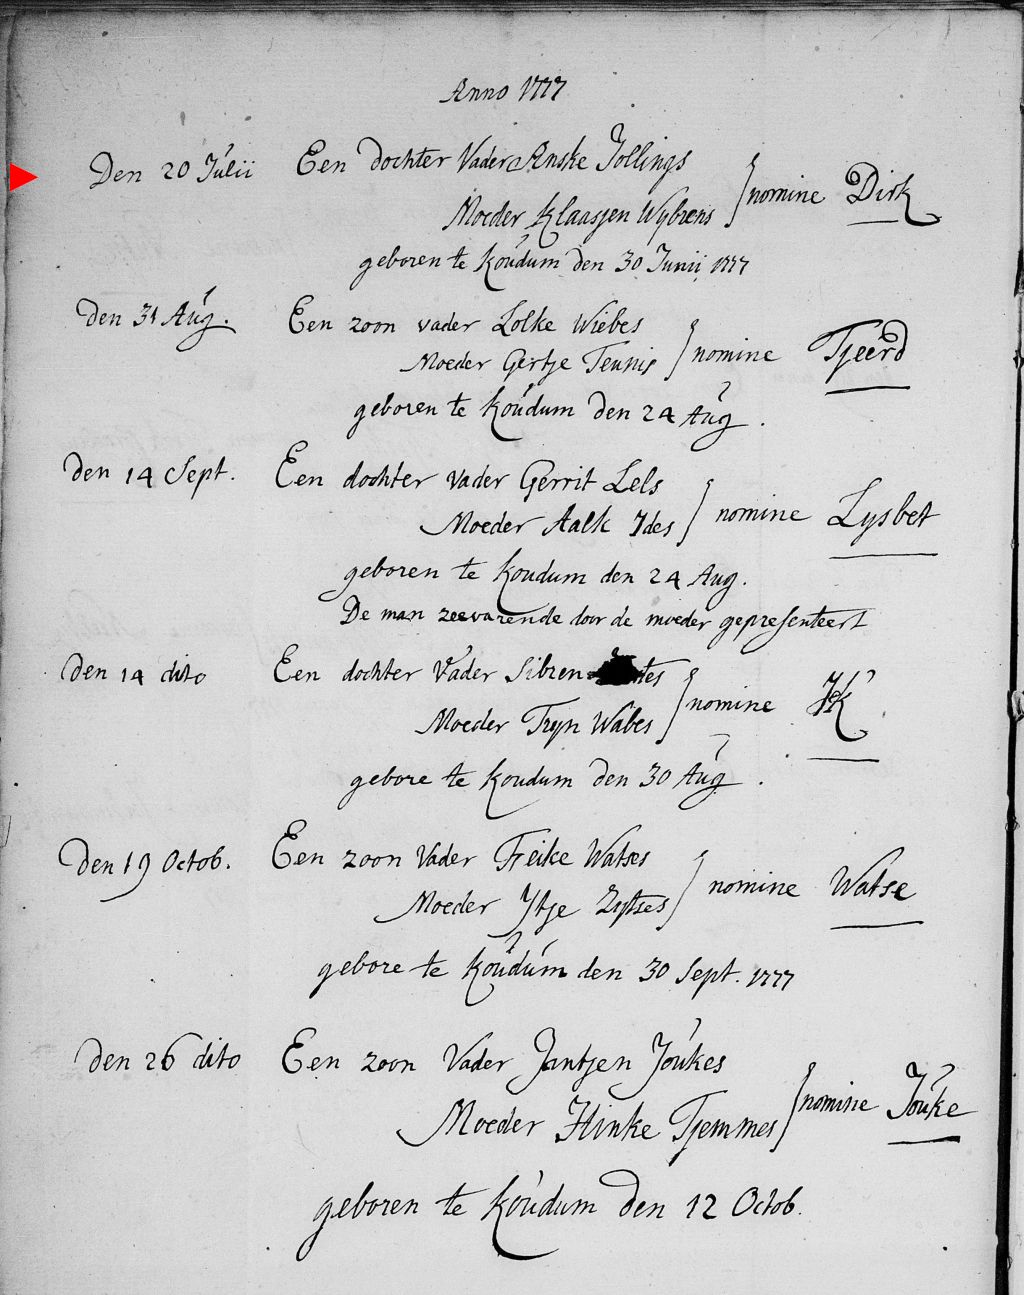 Anno 1777
Den 20 Julii Een dochter Vader Anske Jollings
Moeder Klaasjen Wybrens nomine Dirk
geboren te Koudum den 30 Junii 1777
Den 31 Aug. Een zoon vader Lolke Wiebes
Moeder Gertje Teunis nomine Tjeerd
geboren te Koudum den 24 Aug.
den 14 Sept. Een dochter vader Gerrit Lels
Moeder Aalk Ydes nomine Lysbet
geboren te Koudum den 24 Aug.
De man zeevarende door de moeder gepresenteert
den 14 dito Een dochter Vader Sibren
Moeder Tryn Wabes nomine
gebore te Koudum den 30 Aug.
Den 19 Octob. Een zoon Vader Freike Watses
Moeder Ytje nomine Watse
gebore te Koudum den 30 Sept. 1777
den 26 dito Een zoon Vader Jantjen Joukes
Moeder Hinke Tjemmes nomine Jouke
geboren te Koudum den 12 Octob.